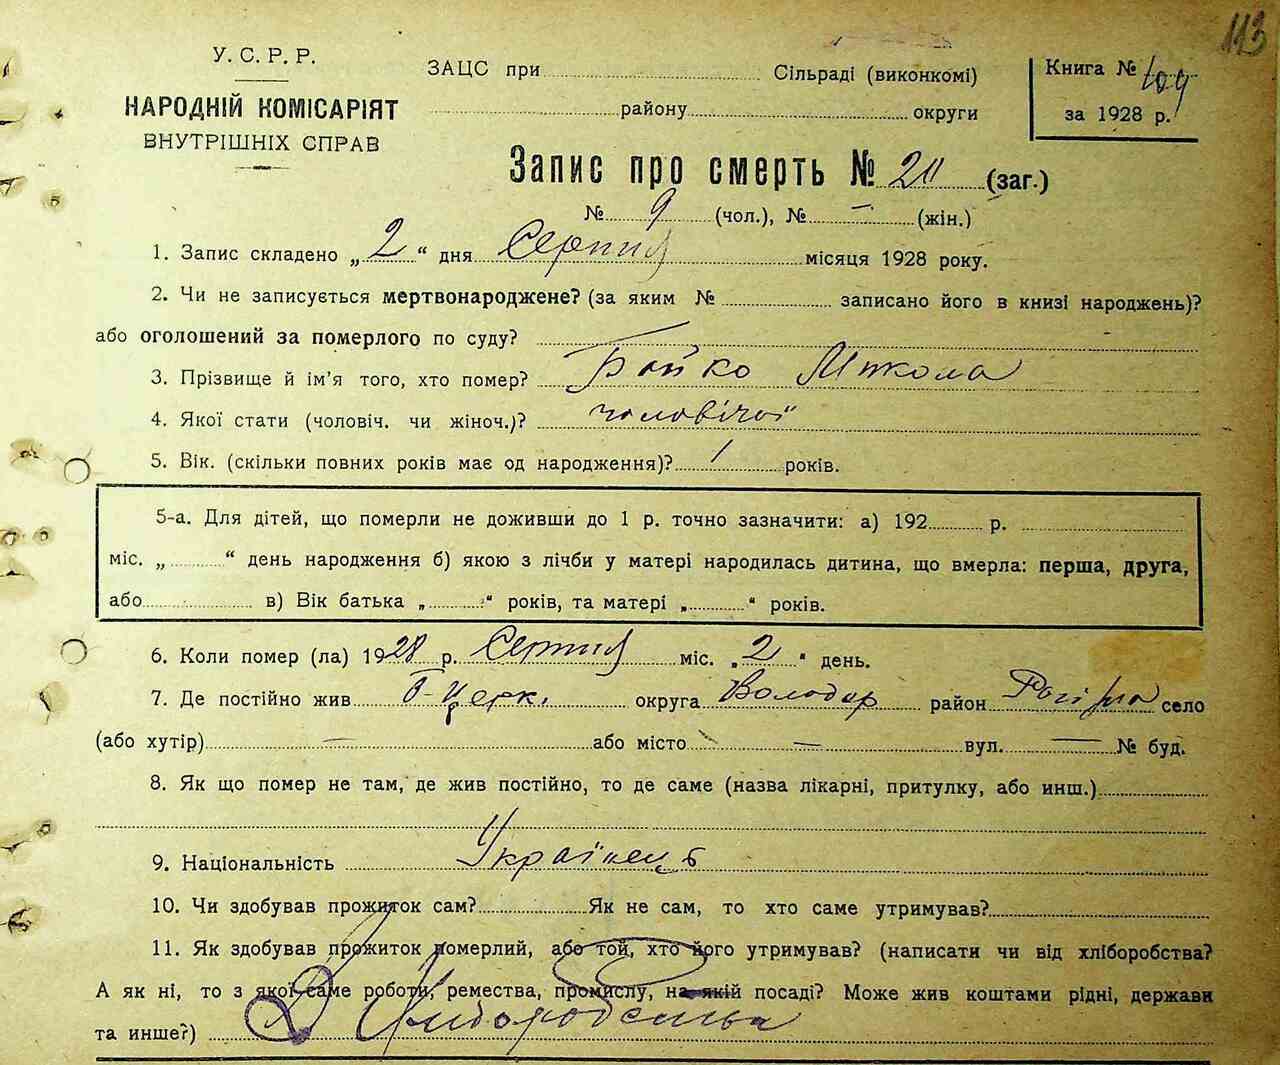 113
У. С. Р. Р.
НАРОДНІЙ КОМІСАРІЯТ
ВНУТРІШНІХ СПРАВ
ЗАЦС при Сільраді (виконкомі)
району округи
Книга № 109
за 1928 р.
Запис про смерть № 20 (заг.)
№ 9 (чол.), № — (жін.)
1. Запис складено „ 2 “ дня Серпня місяця 1928 року.
2. Чи не записується мертвонароджене? (за яким № записано його в книзі народжень)?
або оголошений за померлого по суду?
3. Прізвище й ім’я того, хто помер? Бойко Микола
4. Якої стати (чоловіч. чи жіноч.)? чоловічої
5. Вік. (скільки повних років має од народження)? 1 років.
5-а. Для дітей, що померли не доживши до 1 р. точно зазначити: а) 192 р.
міс. „ “ день народження б) якою з лічби у матері народилась дитина, що вмерла: перша, друга,
або в) Вік батька „ “ років, та матері „ “ років.
6. Коли помер (ла) 1928 р. Серпня міс. „ 2 “ день.
7. Де постійно жив Б-Церк. округа Володар район село
(або хутір) — або місто — вул. — № буд.
8. Як що помер не там, де жив постійно, то де саме (назва лікарні, притулку, або инш.)
9. Національність Українець
10. Чи здобував прожиток сам? Як не сам, то хто саме утримував?
11. Як здобував прожиток померлий, або той, хто його утримував? (написати чи від хліборобства?
А як ні, то з якої саме роботи, ремества, промислу, на якій посаді? Може жив коштами рідні, держави
та инше?) Хліборобства